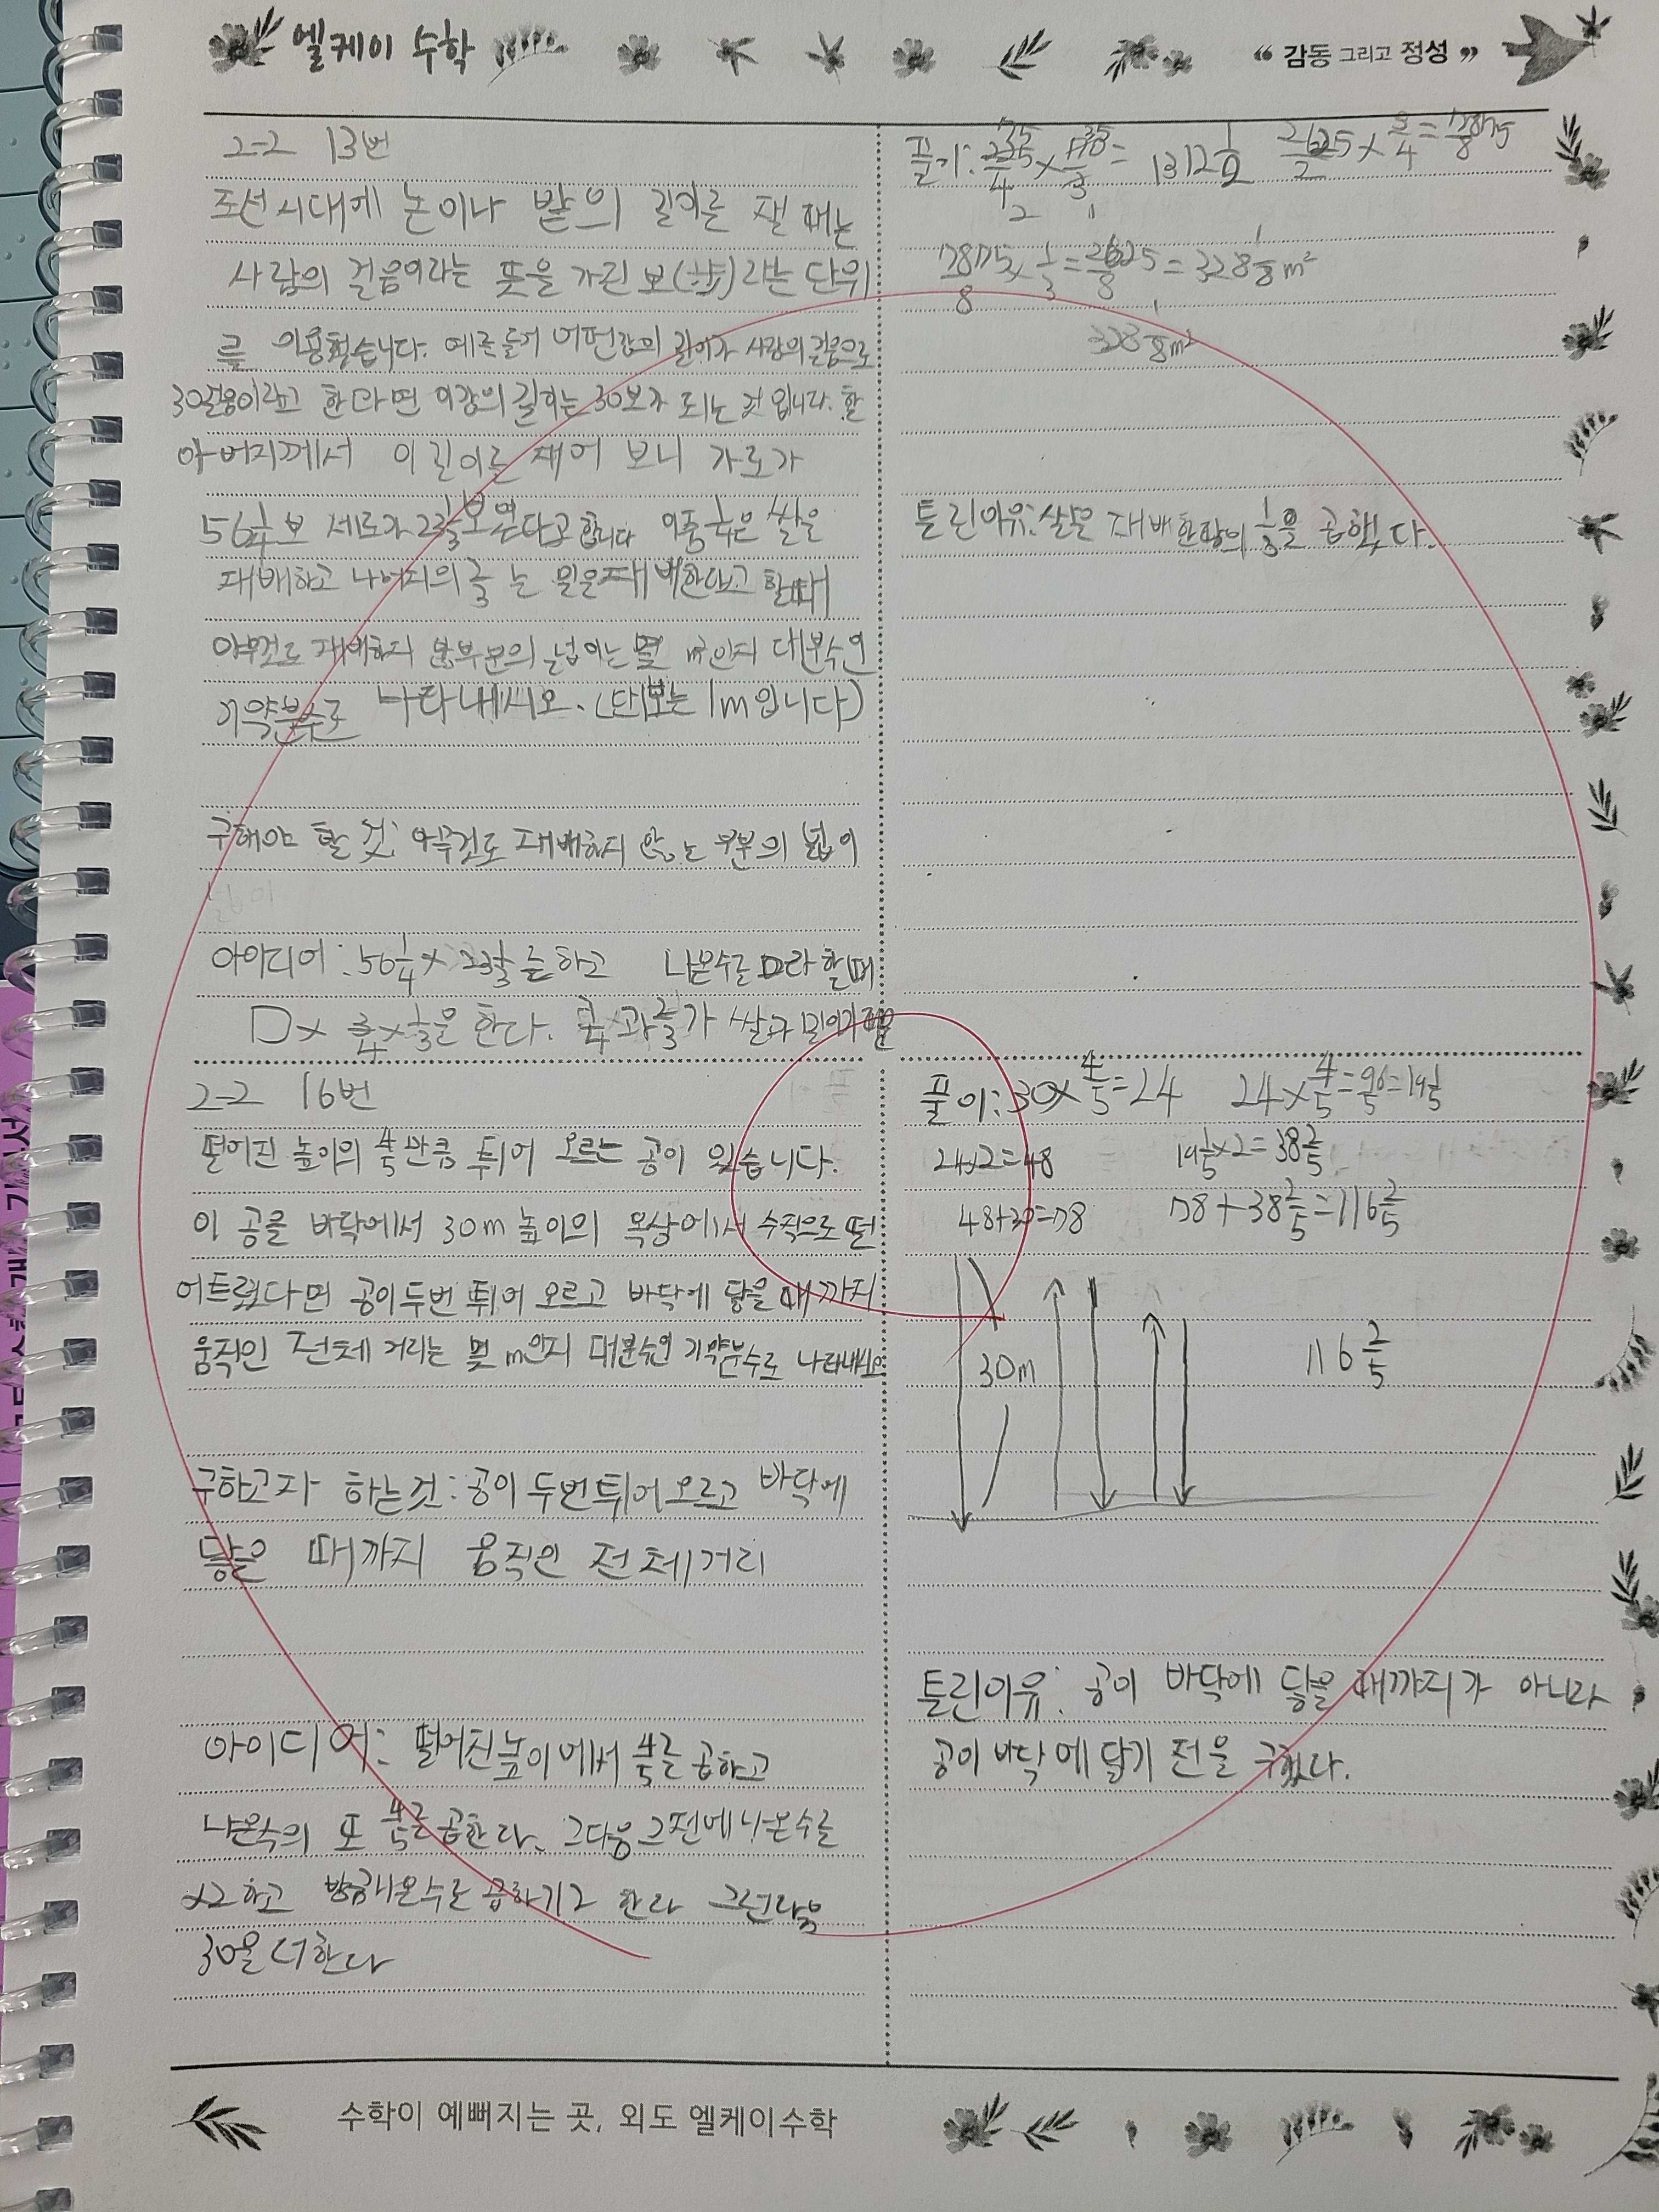 엘케이 수학
“ 감동 그리고 정성 ”
2-2 13번
조선시대에 논이나 밭의 길이를 잴 때는
사람의 걸음이라는 뜻을 가진 보(步)라는 단위
를 이용했습니다. 예를들어 어떤땅의 길이가 사람의 걸음으로
30걸음이라고 한다면 이땅의 길이는 30보가 되는 것 입니다. 할
아버지께서 이 를 재어 보니 가로가
56 1/4 보 세로가 23 1/3 보 였다고 합니다 이중 1/4은 쌀을
재배하고 나머지의 2/3 는 밀을재배한다고 할때
아무것도 재배하지 부분의 넓이는 몇 m²인지 대분수인
기약분수로 나타내시오. (단1보는 1m입니다)
구해야 할 것: 아무것도 재배하지 않는 부분의 넓이
넓이
아이디어: 56 1/4 × 23 1/3을 하고 나온수를 □라 할때
□× 3/4 × 1/3을 한다. 과 2/3가 쌀과 밀이기 때문
풀이: 225/4 × 70/3 = 1312 1/2 2625/2 × 3/4 = 7875/8
7875/8 × 1/3 = 2625/8 = 328 1/8 m²
328 1/8 m²
틀린이유: 쌀을 재배한땅의 1/3을 곱했다.
2-2 16번
떨어진 높이의 4/5만큼 튀어 오르는 공이 있습니다.
이 공을 바닥에서 30m 높이의 옥상에서 수직으로 떨
어트렸다면 공이두번 튀어 오르고 바닥에 닿을 때까지
움직인 전체 거리는 몇 m인지 대분수인 기약분수로 나타내시오
구하고자 하는것: 공이 두번튀어오르고 바닥에
닿을 때까지 움직인 전체거리
아이디어: 떨어진높이에서 4/5를 곱하고
나온수의 또 4/5를 곱한다. 그다음 그전에나온수를
×2하고 방금나온수를 곱하기2 한다 그런다음
30을 더한다
풀이: 30×4/5=24 24×4/5=96/5=19 1/5
24×2=48 19 1/5×2=38 2/5
48+30=78 78+38 2/5=116 2/5
30m 116 2/5
틀린이유: 공이 바닥에 닿을 때까지가 아니라
공이 바닥에 닿기 전을 구했다.
수학이 예뻐지는 곳, 외도 엘케이수학